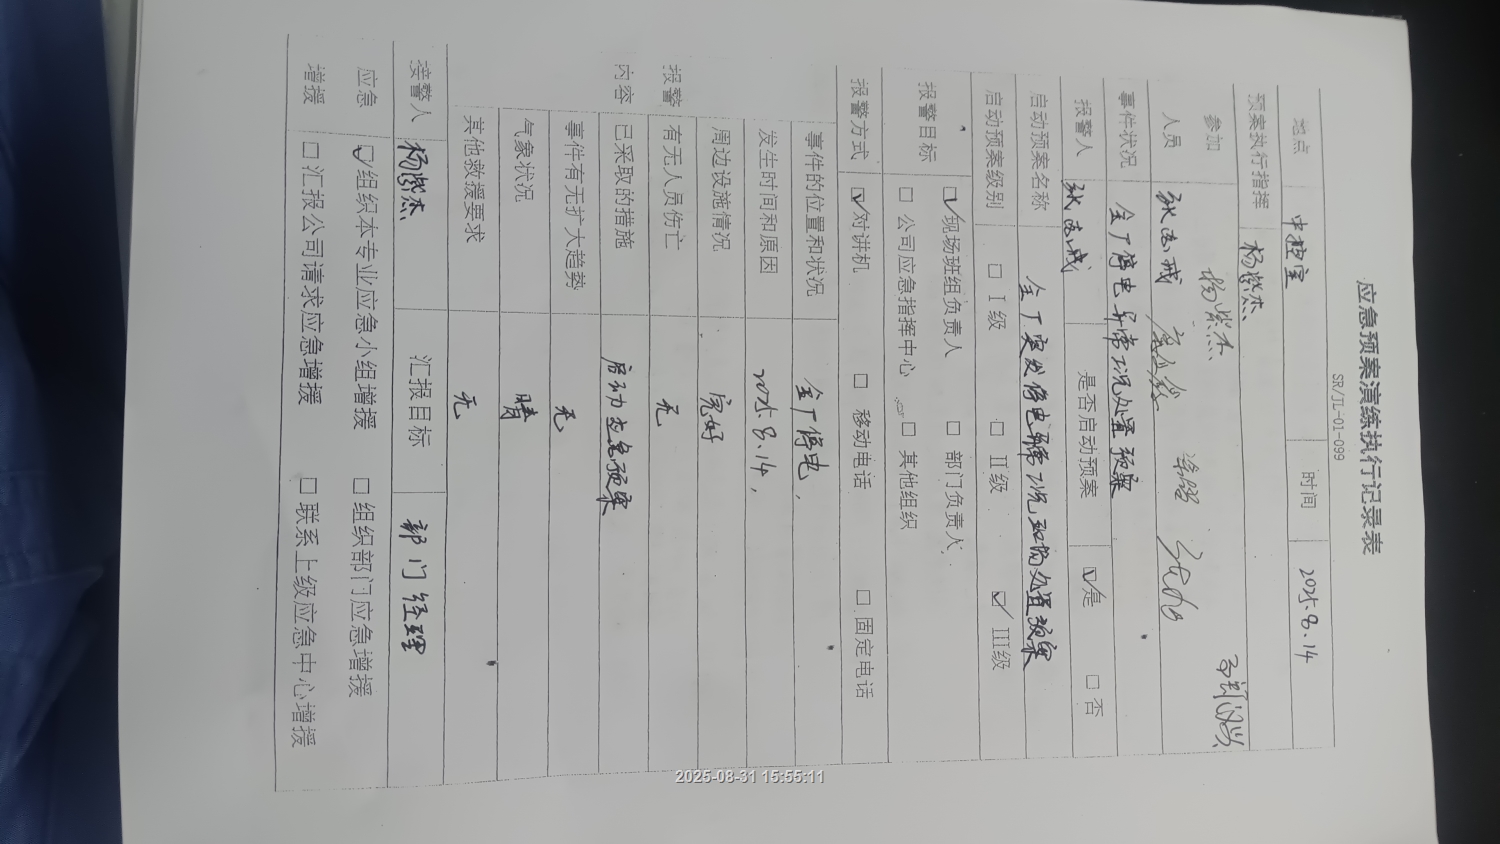 应急预案演练执行记录表
SR/JL-01-099
地点 中控室 时间 2025.8.14
预案执行指挥 杨紫杰
参加 杨紫杰
人员
事件状况 全厂停电异常工况处置预案
报警人 是否启动预案 ☑是 □否
启动预案名称 全厂突发停电异常工况现场处置预案
启动预案级别 □ I级 □ II级 ☑ III级
报警目标 ☑现场班组负责人 □ 部门负责人
□ 公司应急指挥中心 □ 其他组织
报警方式 ☑对讲机 □ 移动电话 □ 固定电话
报警
内容
事件的位置和状况 全厂停电,
发生时间和原因 2025.8.14,
周边设施情况 完好
有无人员伤亡 无
已采取的措施 启动应急预案
事件有无扩大趋势 无
气象状况 晴
其他救援要求 无
接警人 杨紫杰 汇报目标 部门经理
应急 ☑组织本专业应急小组增援 □ 组织部门应急增援
增援 □汇报公司请求应急增援 □ 联系上级应急中心增援
2025-08-31 15:55:11